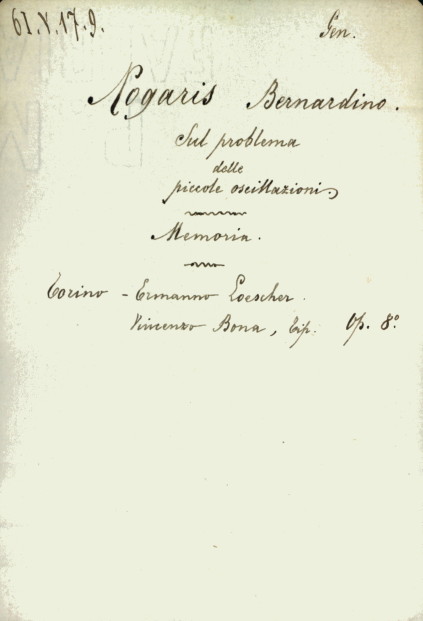 61.V.17.9.
Gen.
Nogaris Bernardino.
Sul problema
delle
piccole oscillazioni.
Memoria.
Torino - Ermanno Loescher.
Vincenzo Bona, Tip. Op. 8.º